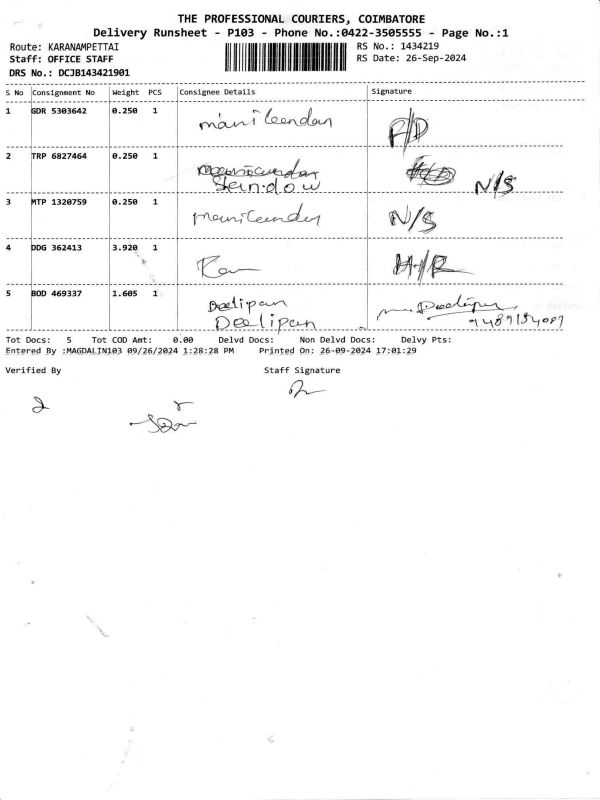 THE PROFESSIONAL COURIERS, COIMBATORE
Delivery Runsheet - P103 - Phone No.:0422-3505555 - Page No.:1
Route: KARANAMPETTAI RS No.: 1434219
Staff: OFFICE STAFF RS Date: 26-Sep-2024
DRS No.: DCJB143421901
S No Consignment No Weight PCS Consignee Details Signature
1 GDR 5303642 0.250 1
2 TRP 6827464 0.250 1 N/S
3 MTP 1320759 0.250 1 N/S
4 DDG 362413 3.920 1
5 BOD 469337 1.605 1 Deelipan
Deelipan
Tot Docs: 5 Tot COD Amt: 0.00 Delvd Docs: Non Delvd Docs: Delvy Pts:
Entered By :MAGDALIN103 09/26/2024 1:28:28 PM Printed On: 26-09-2024 17:01:29
Verified By Staff Signature